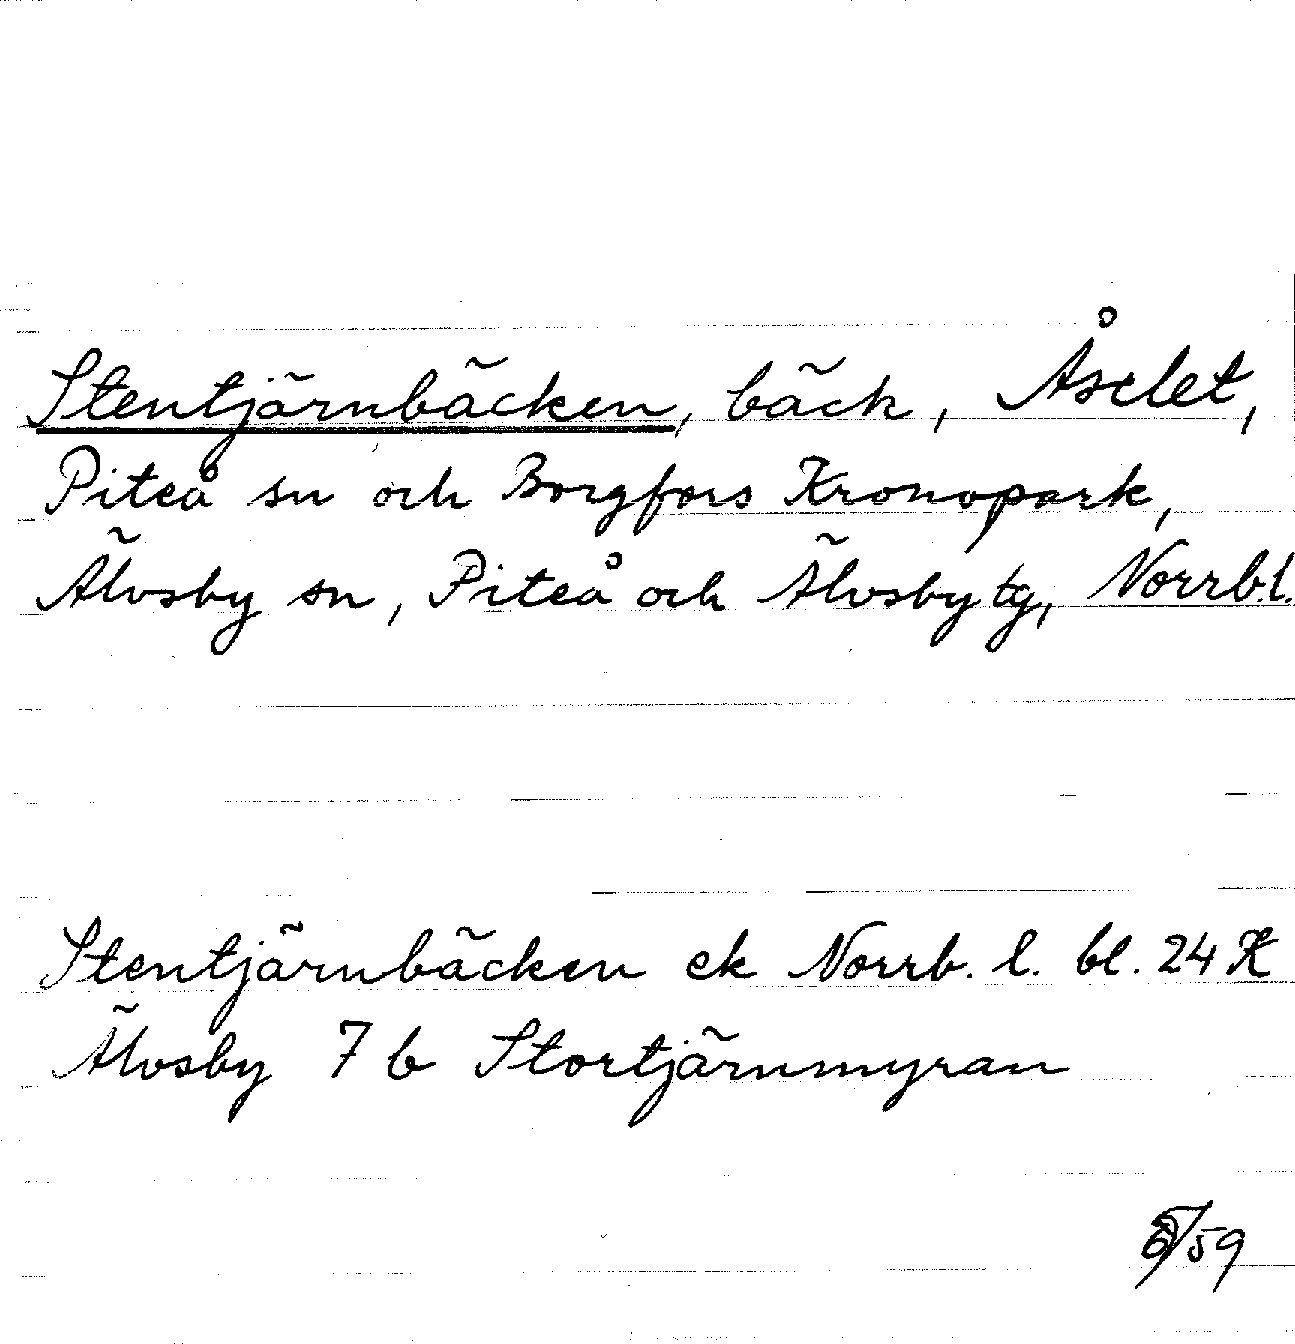 Stentjärnbäcken, bäck, Åselet,
Piteå sn och Borgfors Kronopark,
Älvsby sn, Piteå och Älvsby tg, Norrb.l.
Stentjärnbäcken ek Norrb. l. bl. 24 K
Älvsby 7 b Stortjärnmyran
/59